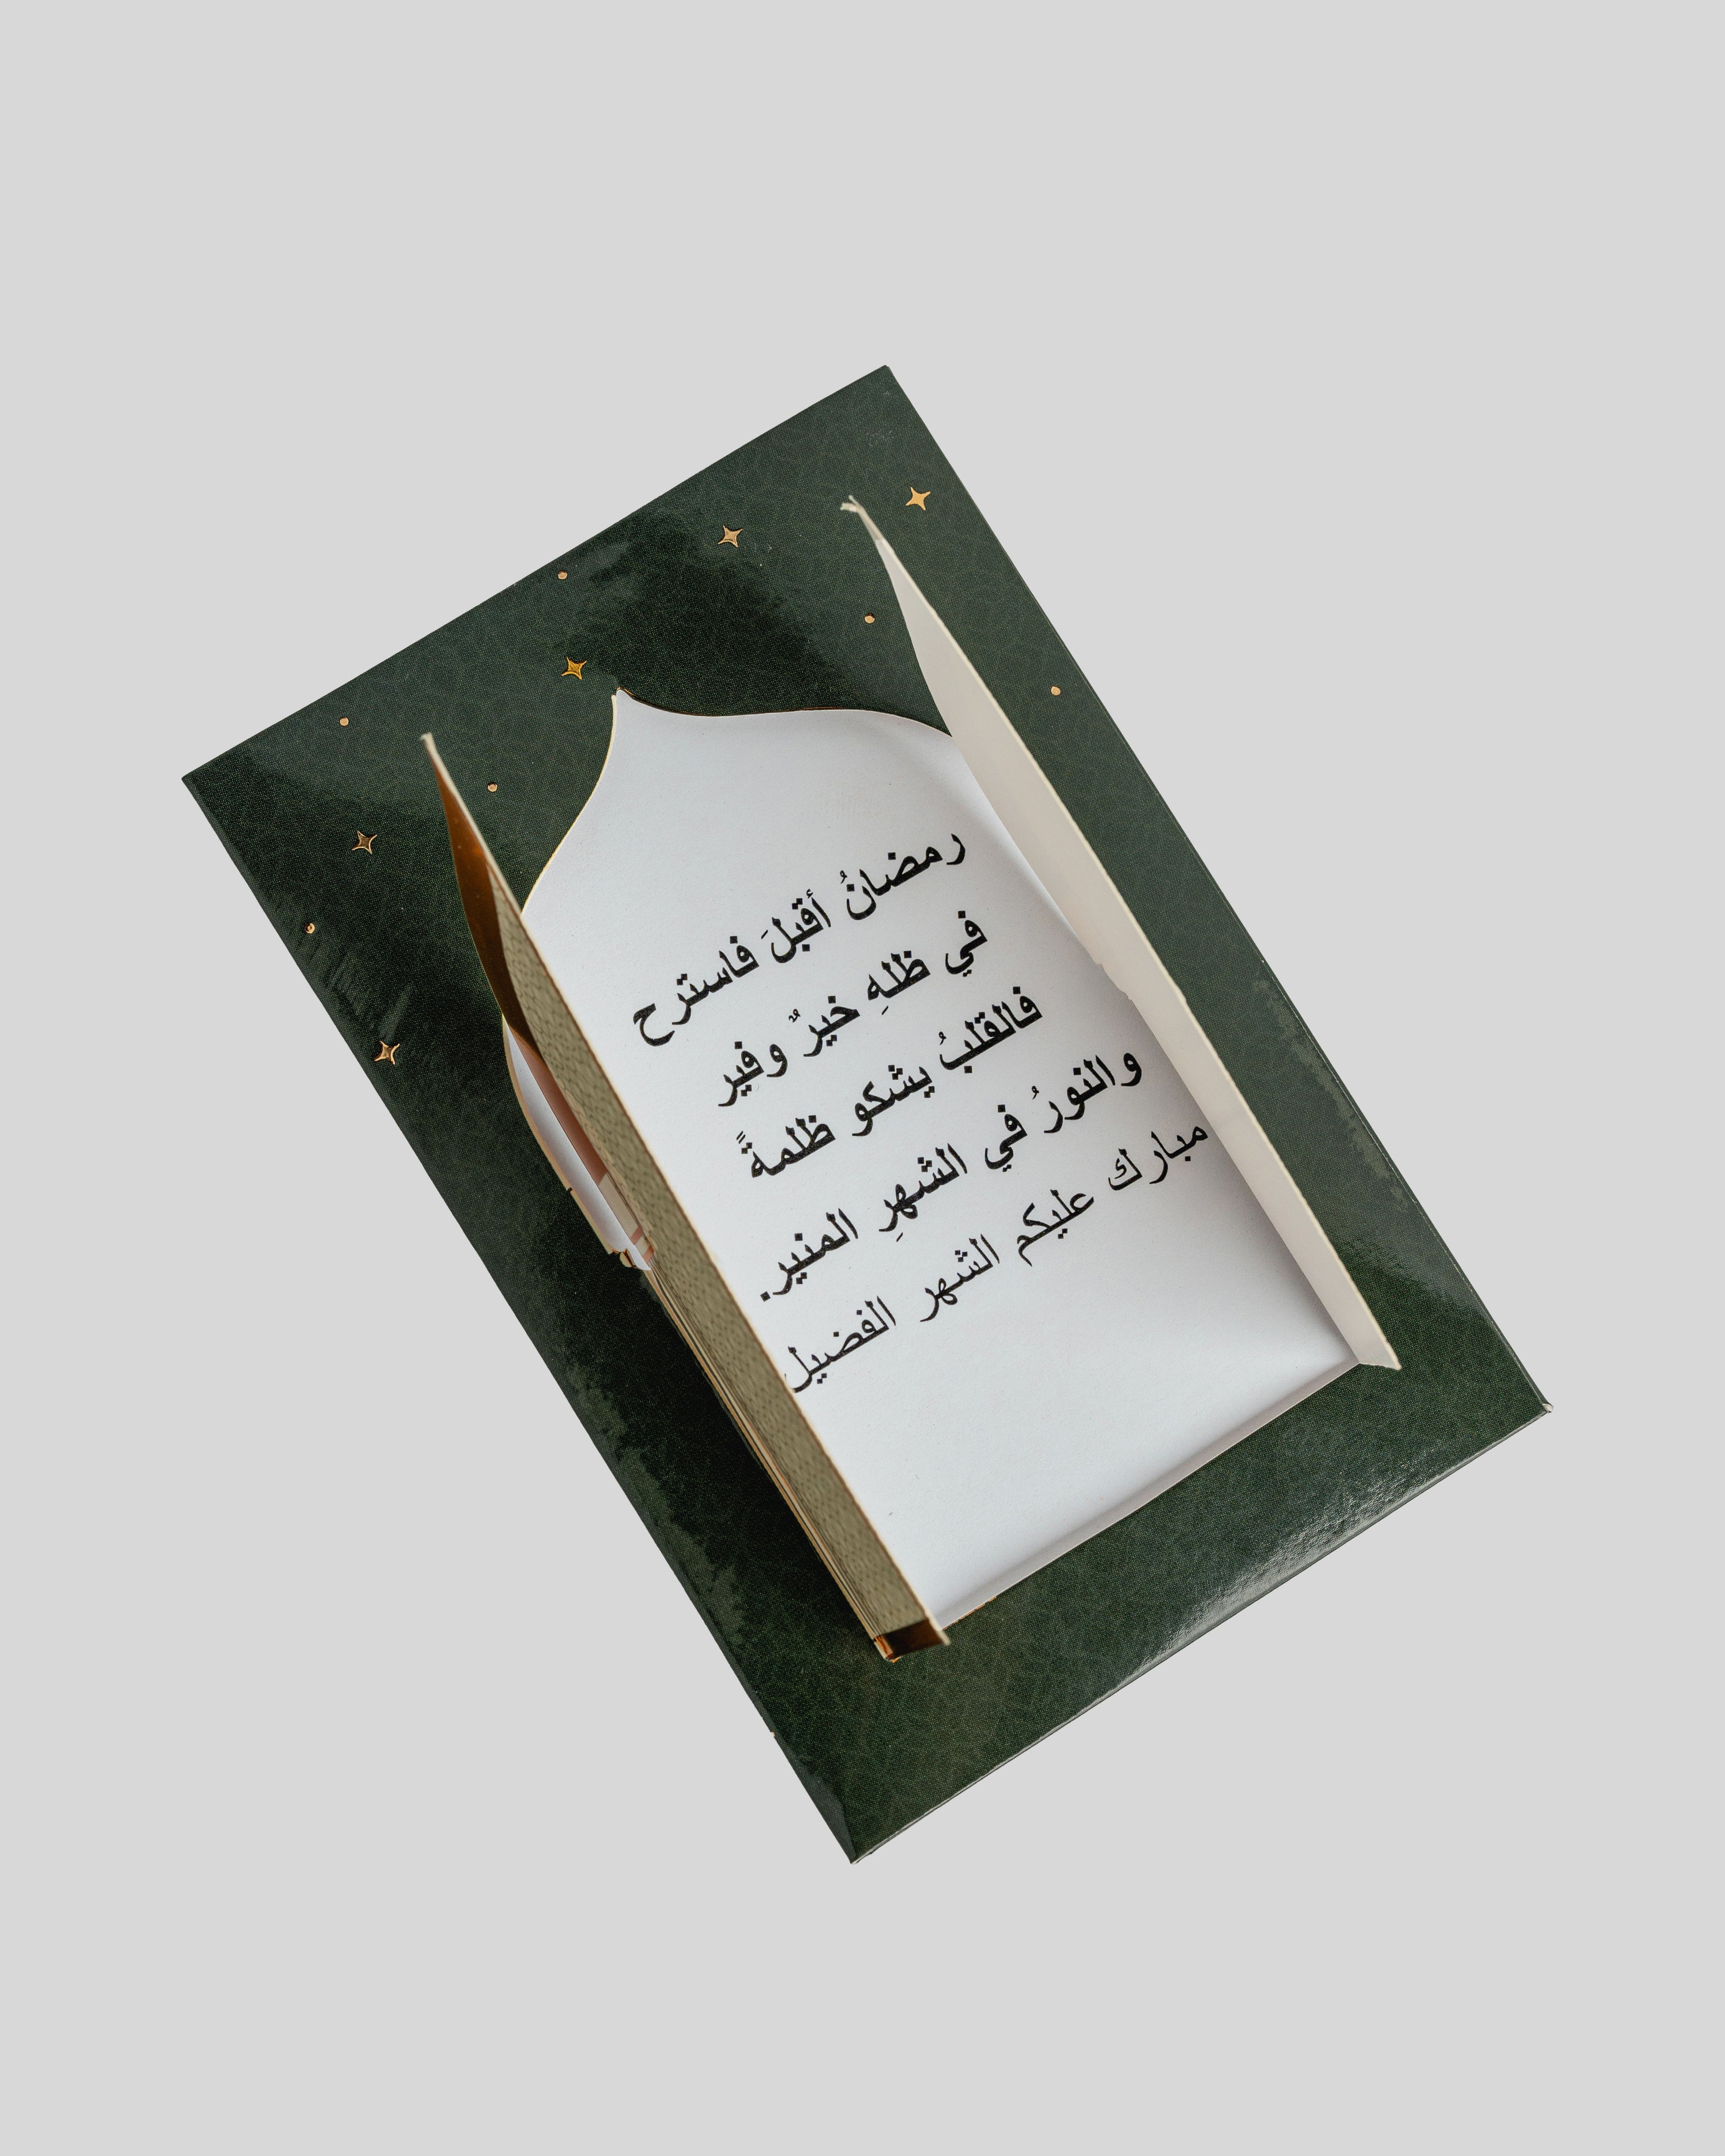 رمضانُ أقبلَ فاسترح
في ظلهِ خيرٌ وفير
فالقلبُ يشكو ظلمةً
والنورُ في الشهرِ المنير.
مبارك عليكم الشهر الفضيل